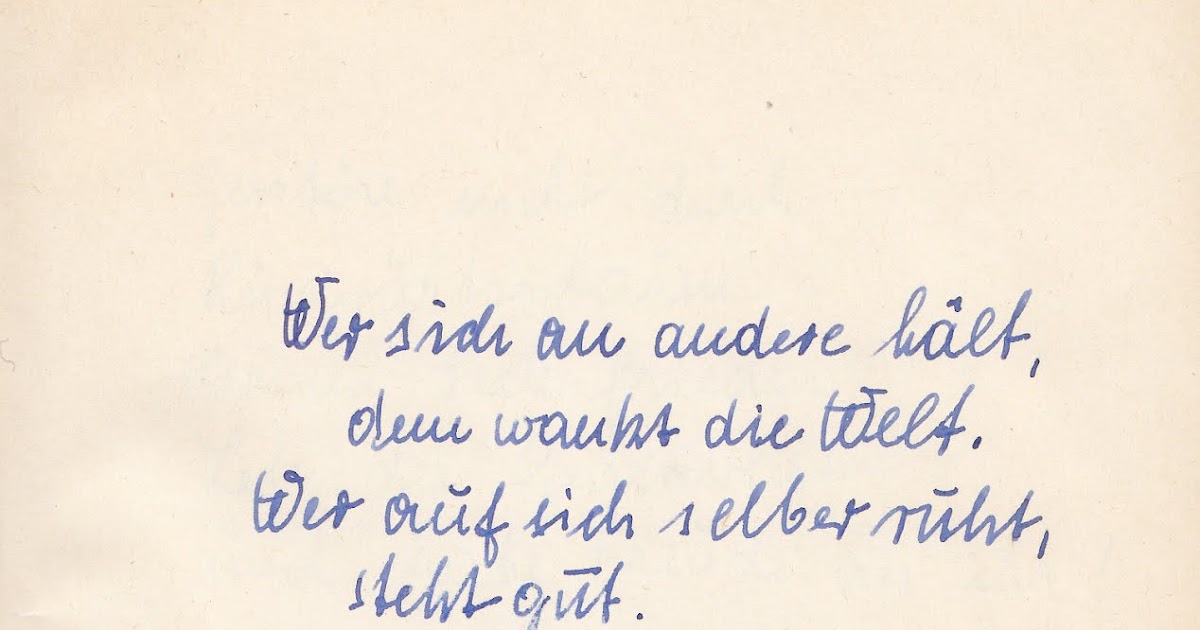 Wer sich an andere hält,
dem wankt die Welt.
Wer auf sich selber ruht,
steht gut.